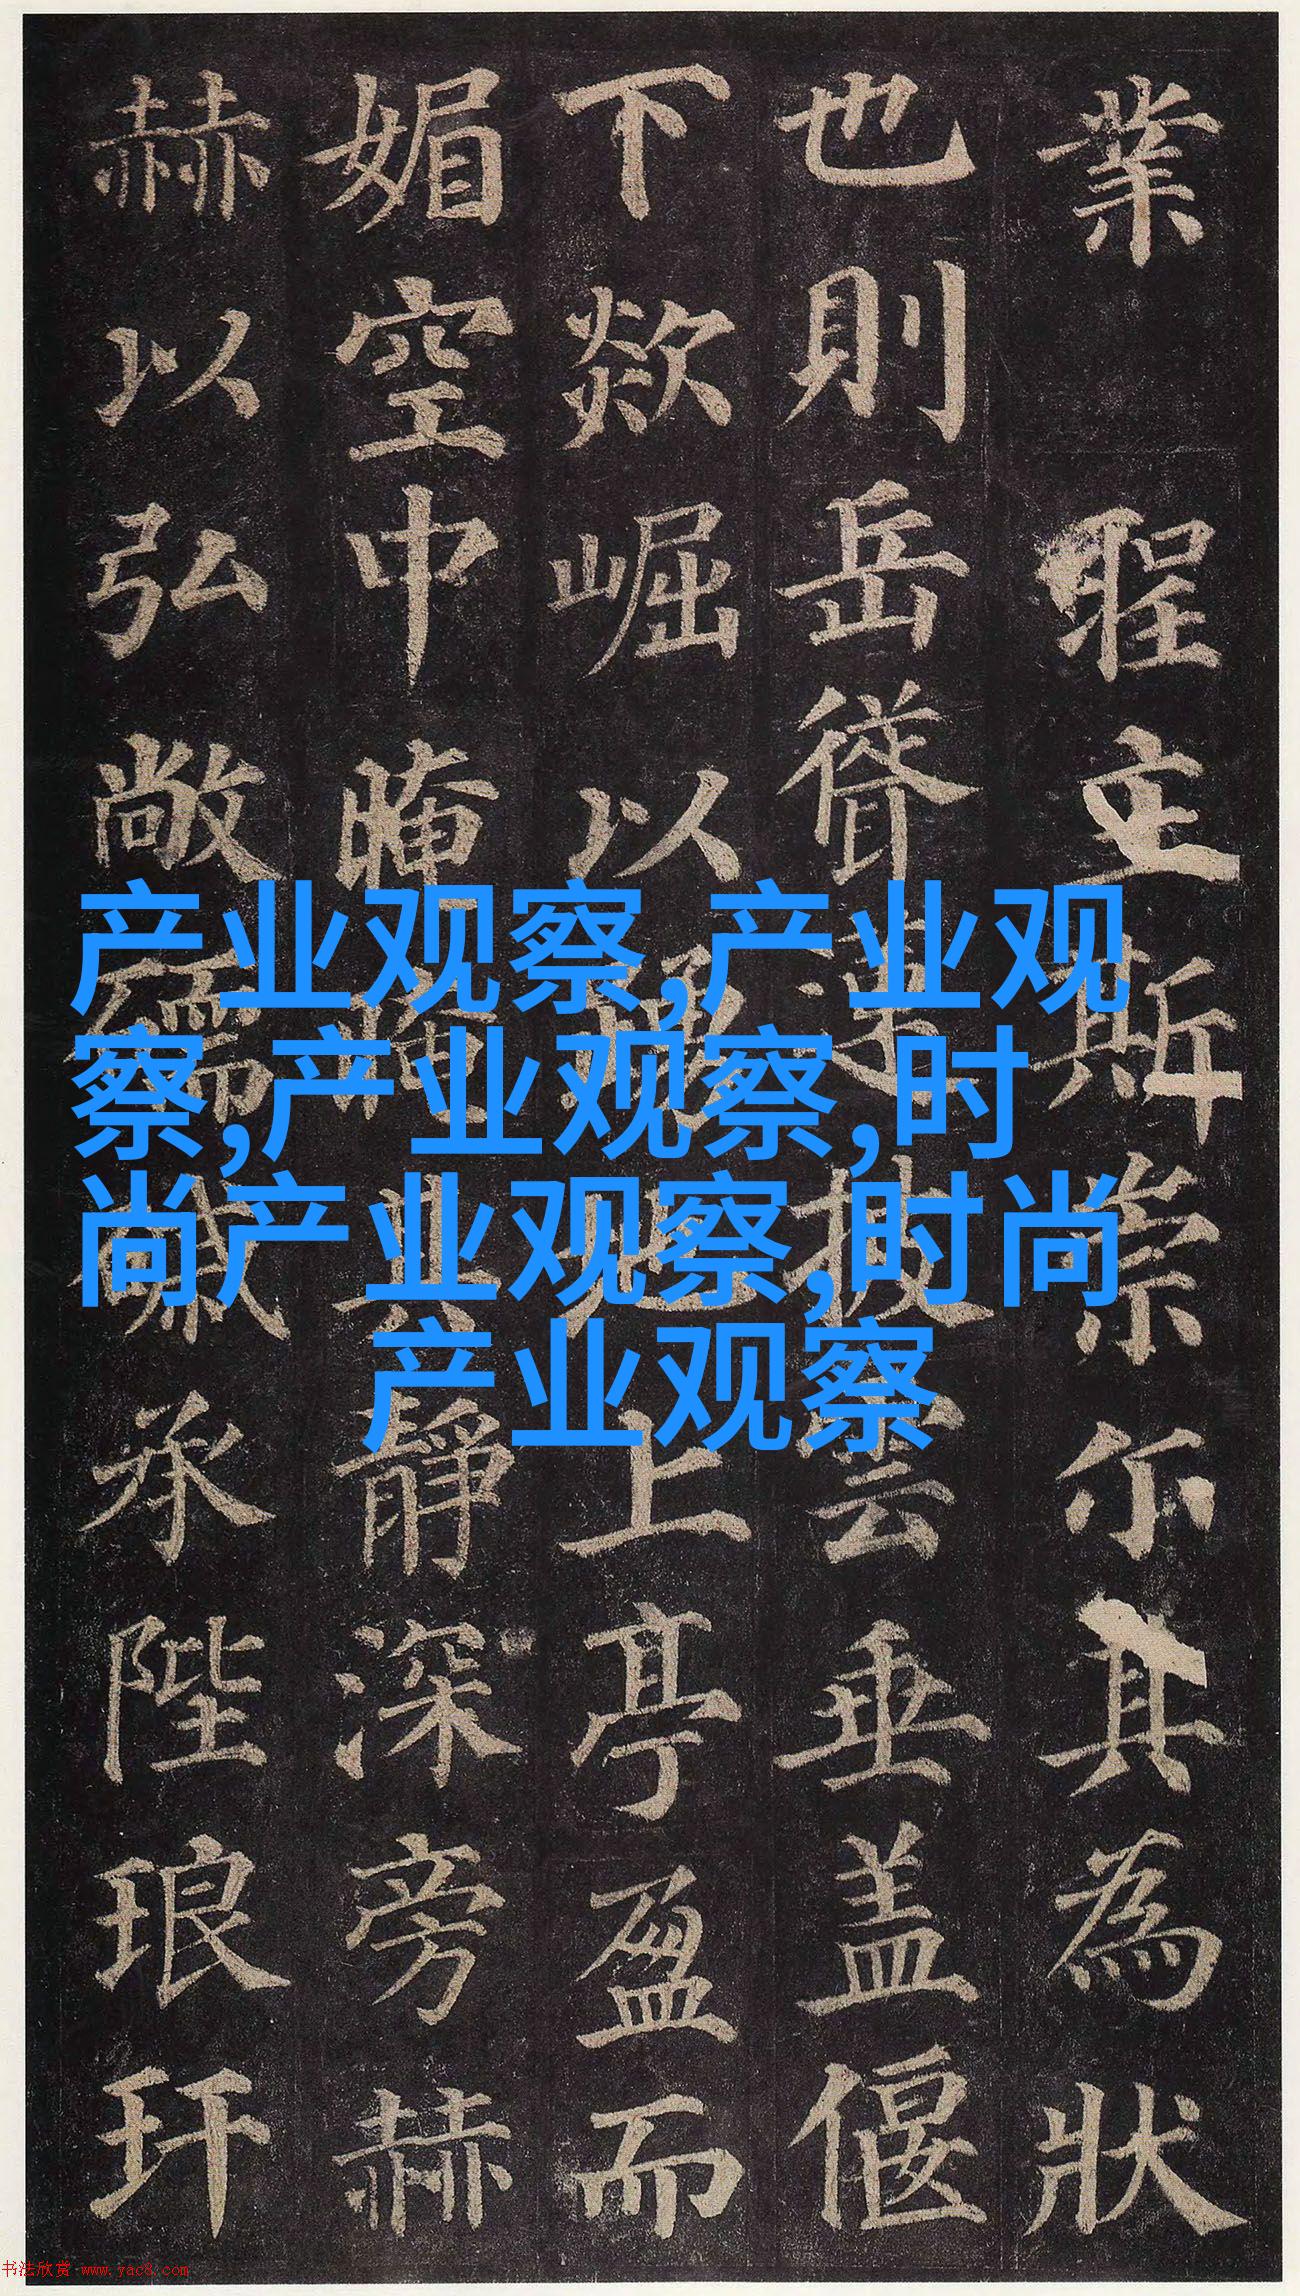 業 聖立斯崇尔其為狀
也則岳聳蓮披雲垂盖偃
下欻崛以踊地上亭盈而
媚空中晻晻其靜深旁赫
赫以弘敞礝磩承陛琅玕
产业观察,产业观
察,产业观察,时
尚产业观察,时尚
产业观察
书法欣赏 www.yac8.com